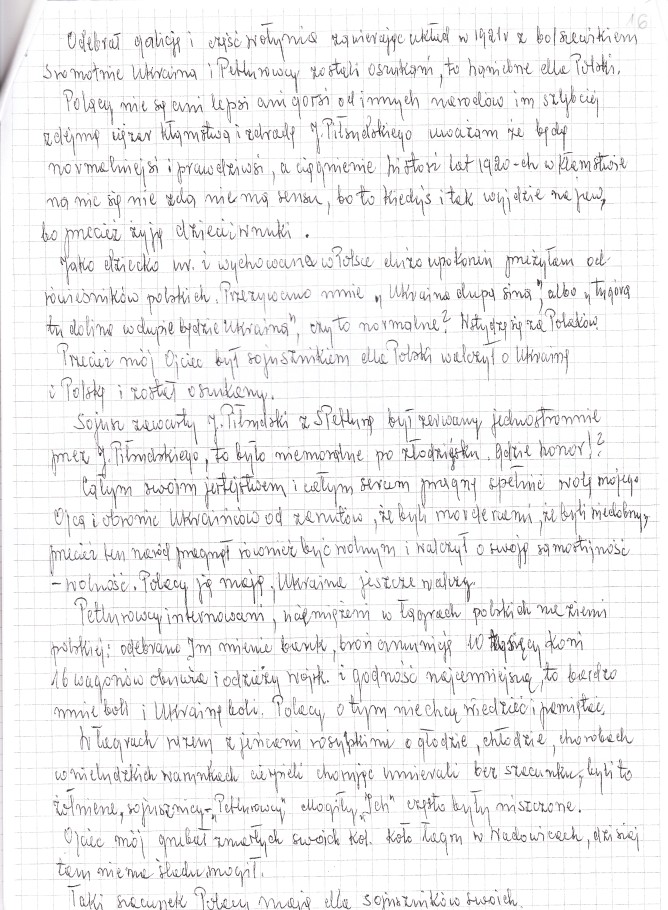 16
Odebrał galicję i część wołynia zawierając układ w 1921r z bolszewikiem
Sromotnie Ukraina i Petlurowcy zostali oszukani, to haniebne dla Polski.
Polacy nie są ani lepsi ani gorsi od innych narodów im szybciej
zdejmą ciężar kłamstwa i zdradę J. Piłsudskiego uważam że będą
normalniejsi i prawdziwsi, a ciągnienie histori lat 1920-ch w kłamstwie
na nic się nie zda nie ma sensu, bo to kiedyś i tak wyjdzie na jaw,
bo przecież żyją dzieci i wnuki.
Jako dziecko ur. i wychowana w Polsce dużo upokorzeń przeżyłam od
rówieśników polskich. Przezywano mnie „Ukraina dupa sina", albo „tu góra
tu dolina w dupie będzie Ukraina", czy to normalne? Wstydzę się za Polaków
Przecież mój Ojciec był sojusznikiem dla Polski walczył o Ukrainę
i Polskę i został oszukany.
Sojusz zawarty J. Piłsudski z S Petlurą był zerwany jednostronnie
przez J. Piłsudskiego, to było niemoralne po złodziejsku. Gdzie honor!?
Całym swoim jestejstwem i całym sercem pragnę spełnić wolę mojego
Ojca i obronić Ukraińców od zarzutów, że byli mordercami, że byli niedobrzy,
przecież ten naród pragnął również być wolnym i walczył o swoją samostijność
- wolność. Polacy ją mają, Ukraina jeszcze walczy.
Petlurowcy internowani, w łagrach polskich na ziemi
polskiej: odebrano Im mienie bank, broń amunicję 10 tysięcy koni
16 wagonów obuwia i odzieży wojsk. i godność najcenniejszą, to bardzo
mnie boli i Ukrainę boli. Polacy o tym nie chcą wiedzieć i pamiętać.
W łagrach razem z jeńcami rosyjskimi o głodzie, chłodzie, chorobach
w nieludzkich warunkach cierpieli chorując umierali bez szacunku, byli to
żołnierze, sojusznicy - „Petlurowcy" Mogiły „Ich" często były niszczone.
Ojciec mój grzebał zmarłych swoich kol. koło łagru w Wadowicach, dzisiaj
tam nie ma śladu mogił.
Taki szacunek Polacy mają dla sojuszników swoich.